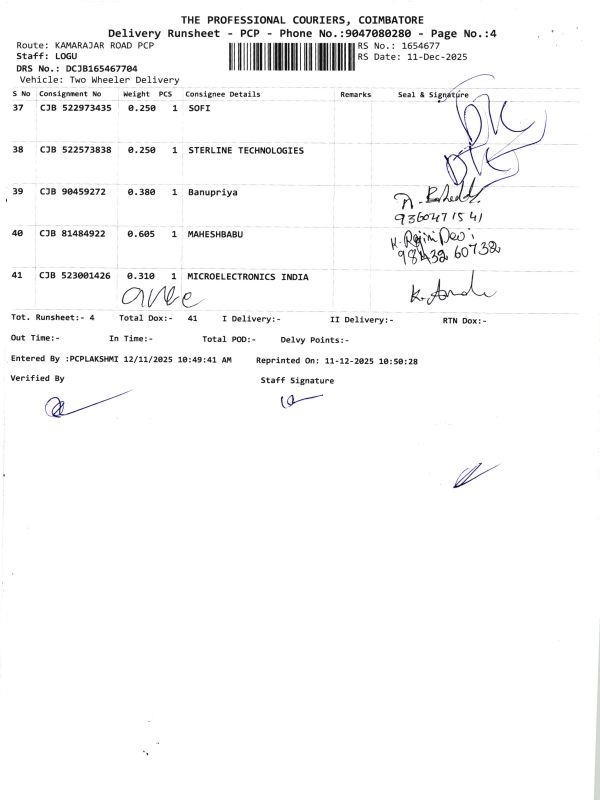 THE PROFESSIONAL COURIERS, COIMBATORE
Delivery Runsheet - PCP - Phone No.:9047080280 - Page No.:4
Route: KAMARAJAR ROAD PCP RS No.: 1654677
Staff: LOGU RS Date: 11-Dec-2025
DRS No.: DCJB165467704
Vehicle: Two Wheeler Delivery
S No Consignment No Weight PCS Consignee Details Remarks Seal & Signature
37 CJB 522973435 0.250 1 SOFI DTC
38 CJB 522573838 0.250 1 STERLINE TECHNOLOGIES DTC
39 CJB 90459272 0.380 1 Banupriya
9360471541
40 CJB 81484922 0.605 1 MAHESHBABU K. Rajini Devi
98432 60732
41 CJB 523001426 0.310 1 MICROELECTRONICS INDIA
Tot. Runsheet:- 4 Total Dox:- 41 I Delivery:- II Delivery:- RTN Dox:-
Out Time:- In Time:- Total POD:- Delvy Points:-
Entered By :PCPLAKSHMI 12/11/2025 10:49:41 AM Reprinted On: 11-12-2025 10:50:28
Verified By Staff Signature